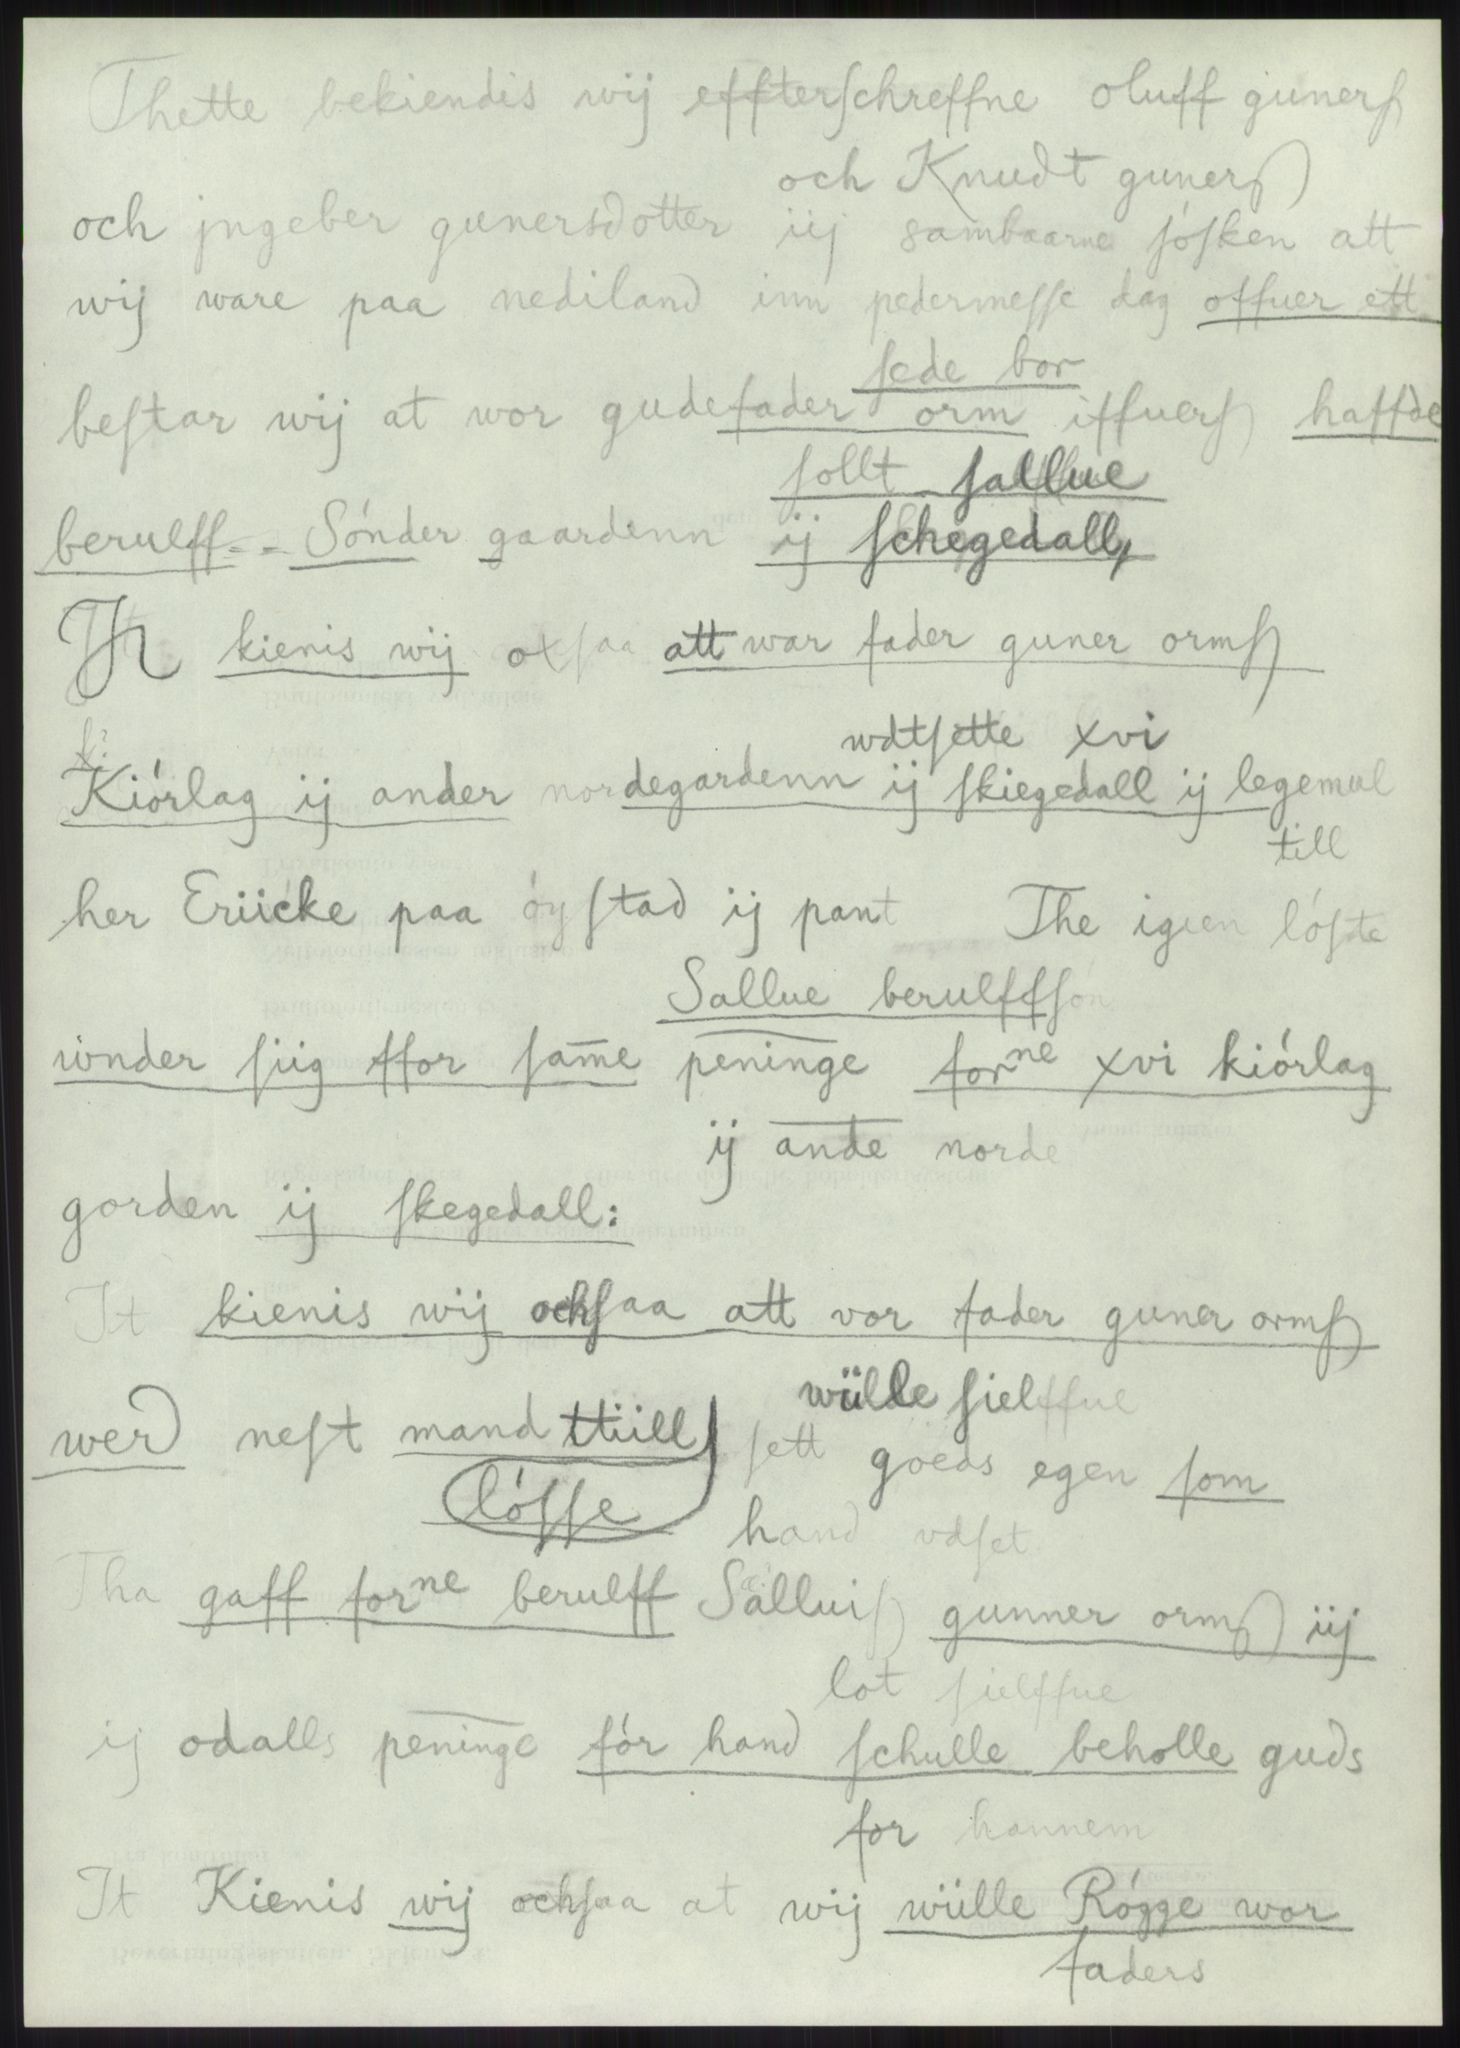 Thette bekiendis wij effterschreffne oluff gunerß
och Knudt gunerß
och jngeber gunersdotter iij sambaarne sósken att
wij ware paa nediland inn pedermesse dag offuer ett
sede bor
bestar wij at wor gudefader orm iffuerß haffde
sollt sallue
berulff-- Sónder gaardenn ij schegedall,
It kienis wij oxsaa att war fader guner ormß
wdtsette xvi
Kiórlag ij ander nordegardenn ij skiegedall ij legemal
till
her Eriicke paa óystad ij pant The igien lóste
Sallue berulffsón
wnder siig ffor same peninge forne xvi kiórlag
ij ande norde
gorden ij skegedall:
It kienis wij ochsaa att vor fader guner ormß
wülle sielffue
werd nest mand ttiill sett goeds egen som
lósse
hand vdset
Tha gaff forne berulff Salluiß gunner ormß iij
lot sielffue
ij odalls peninge fór hand schulle beholle guds
for hannem
It Kienis wij ochsaa at wij wülle Rógge wor
faders